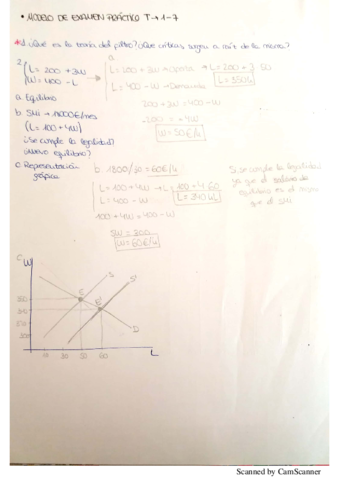 • MODELO DE EXAMEN PRÁCTICO T → 1-7
1 ¿Qué es la teoría del filtro? ¿Qué críticas surgen a raíz de la misma?
2. L = 200 + 3W
W = 400 - L
a. Equilibrio
b. SMI → 1800€/mes
(L = 100 + 4W)
¿Se cumple la legalidad?
¿Nuevo equilibrio?
c. Representación gráfica
a.
L = 200 + 3W → Oferta → L = 200 + 3 · 50
L = 400 - W → Demanda
L = 350
200 + 3W = 400 - W
-200 = +4W
W = 50€/h
b. 1800/30 = 60€/h
L = 100 + 4W → L = 100 + 4 · 60
L = 400 - W
L = 340
100 + 4W = 400 - W
5W = 300
W = 60€/h
Se cumple la legalidad
ya que el salario de
equilibrio es el mismo
que el SMI
C.
W
S
S'
E
E'
D
350
340
10 30 50 60
L
Scanned by CamScanner